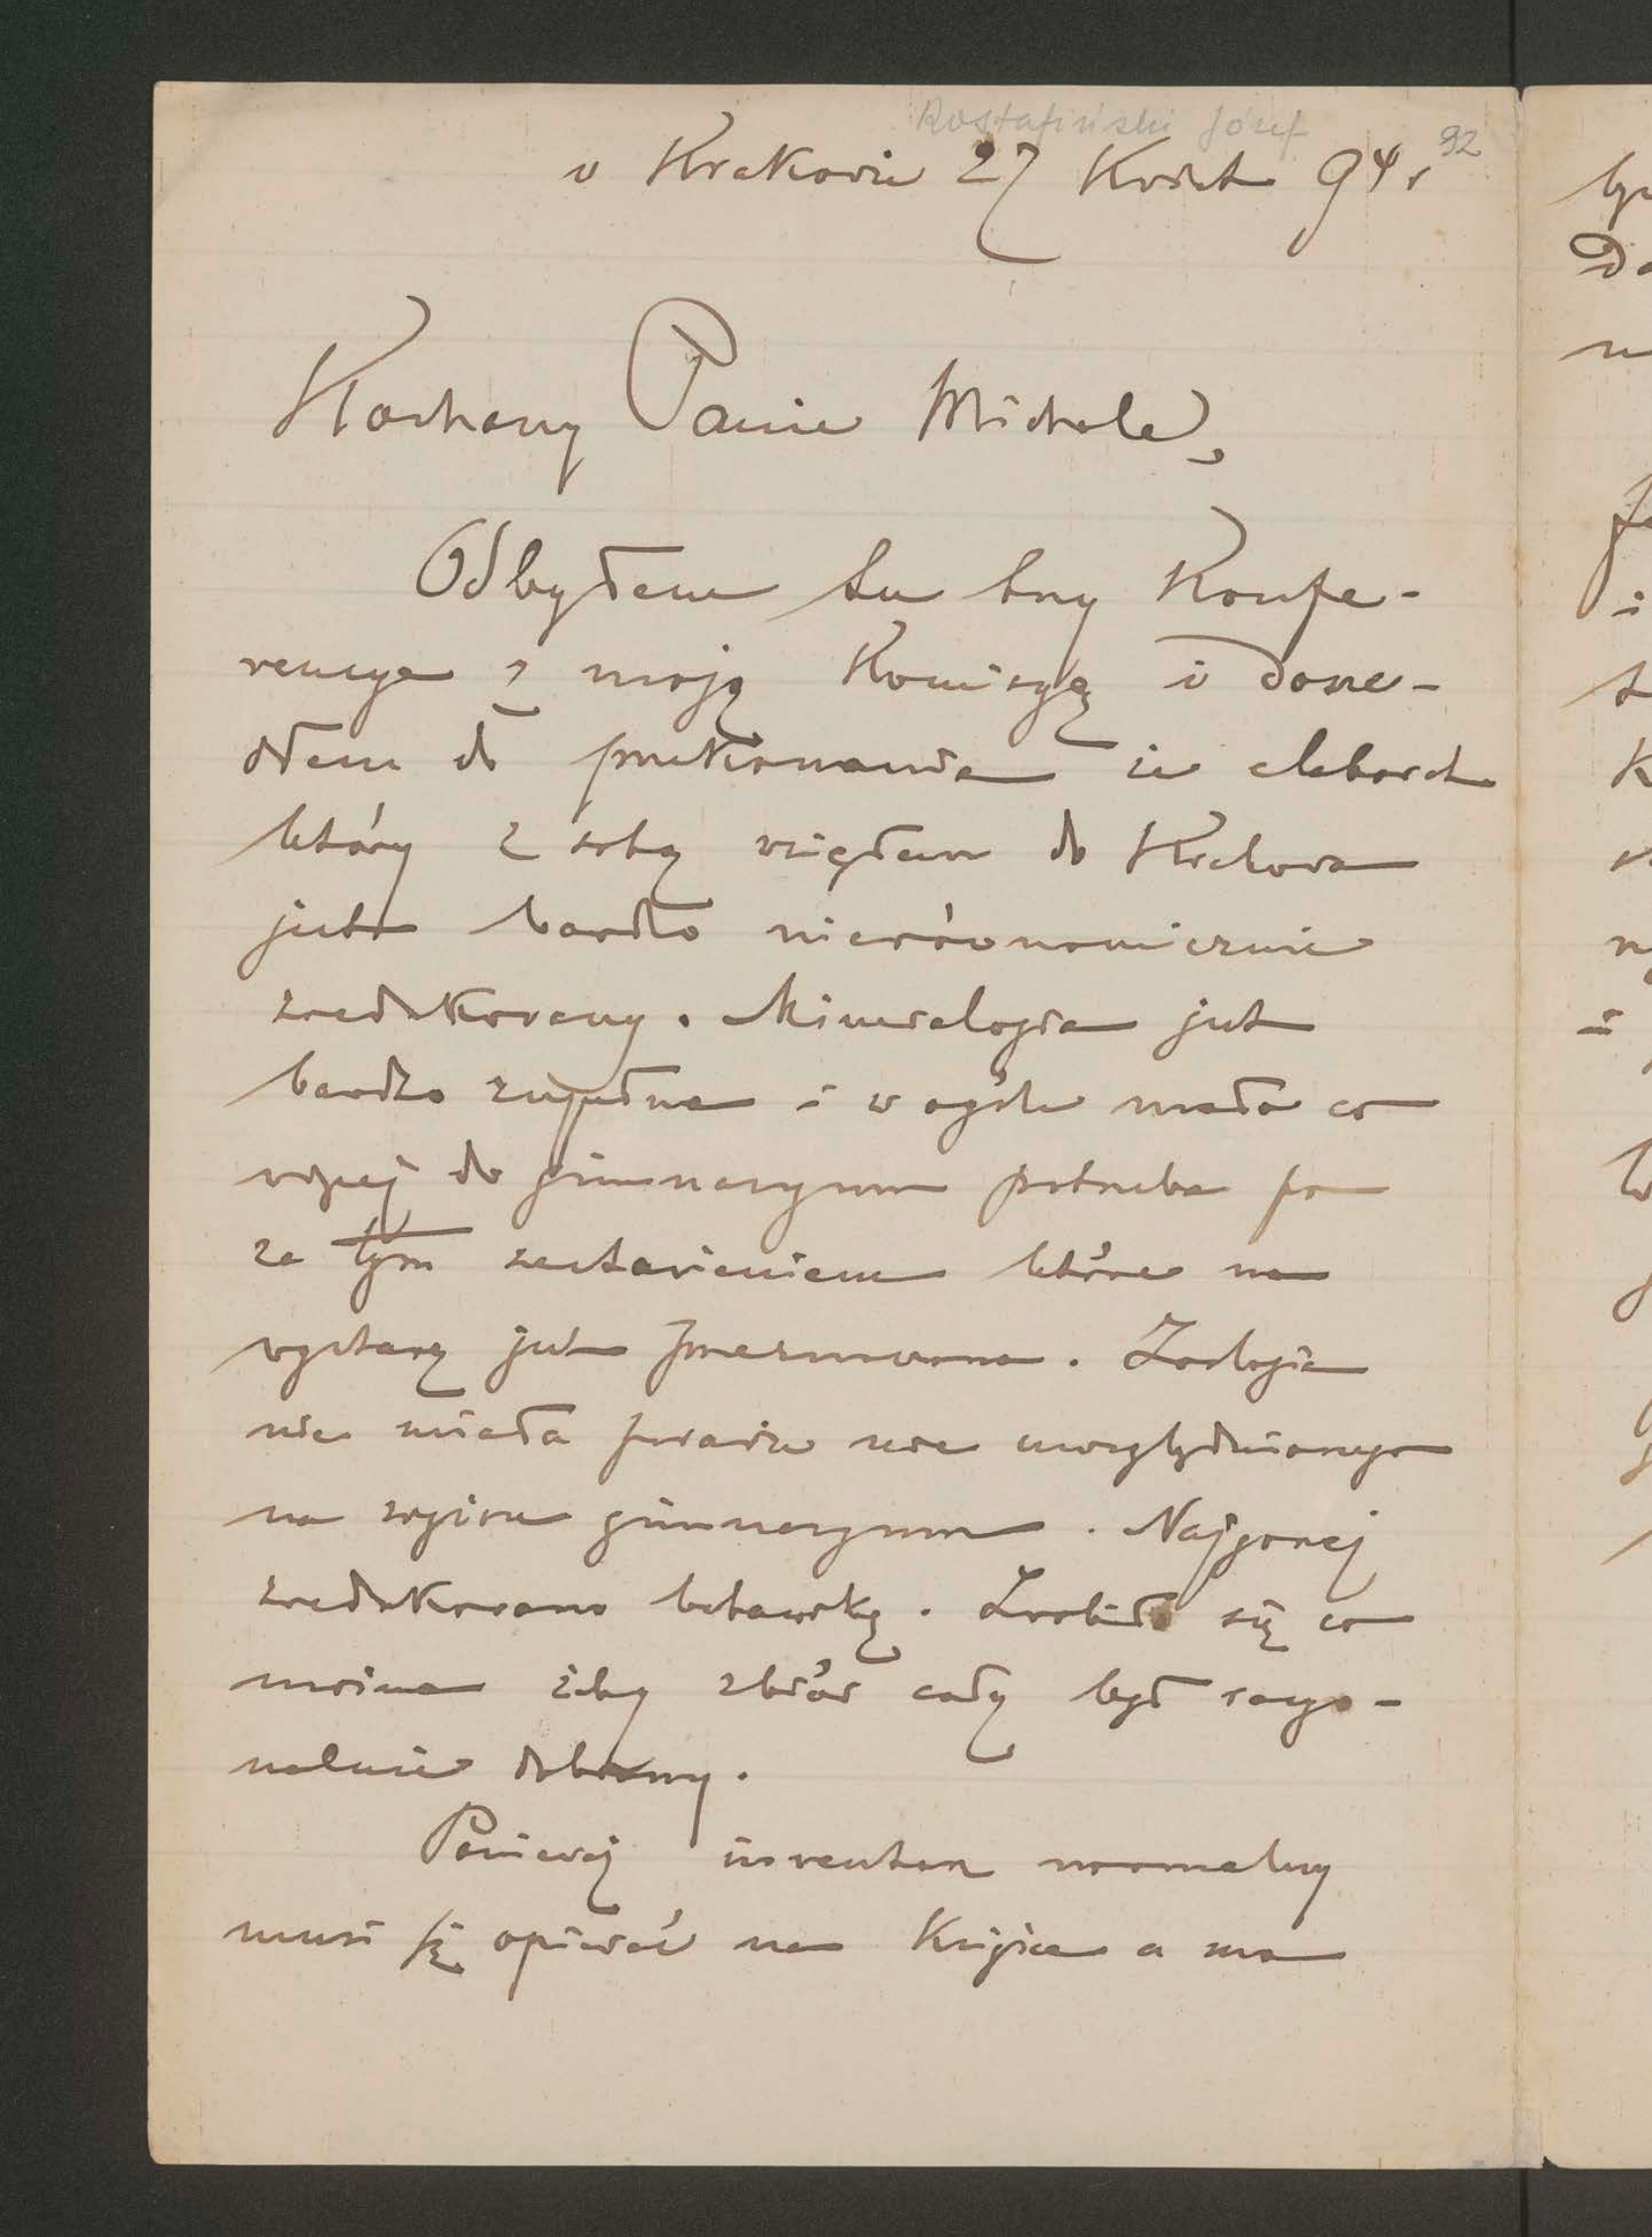 Rostafiński Józef
92
w Krakowie 27 Kwiet 94 r
Kochany Panie Michale,
Odbyłem tu trzy Konfe-
rencye z moją Komisyą i dosze-
dłem do przekonania że elaborat
który z sobą wziąłem do Krakowa
jest bardzo nierównomiernie
zredakowany. Mineralogia jest
bardzo zupełna i w ogóle mało co
więcej do gimnazyum potrzeba po
za tym zestawieniem które na
wystawę jest przeznaczone. Zoologia
nie miała prawie nic uwzględnionego
na wyższe gimnazyum. Najgorzej
zredakowano botanikę. Zrobiło się co
można żeby zbiór cały był racyo-
nalnie dobrany.
Ponieważ inwentarz normalny
musi się opierać na Książce a ma